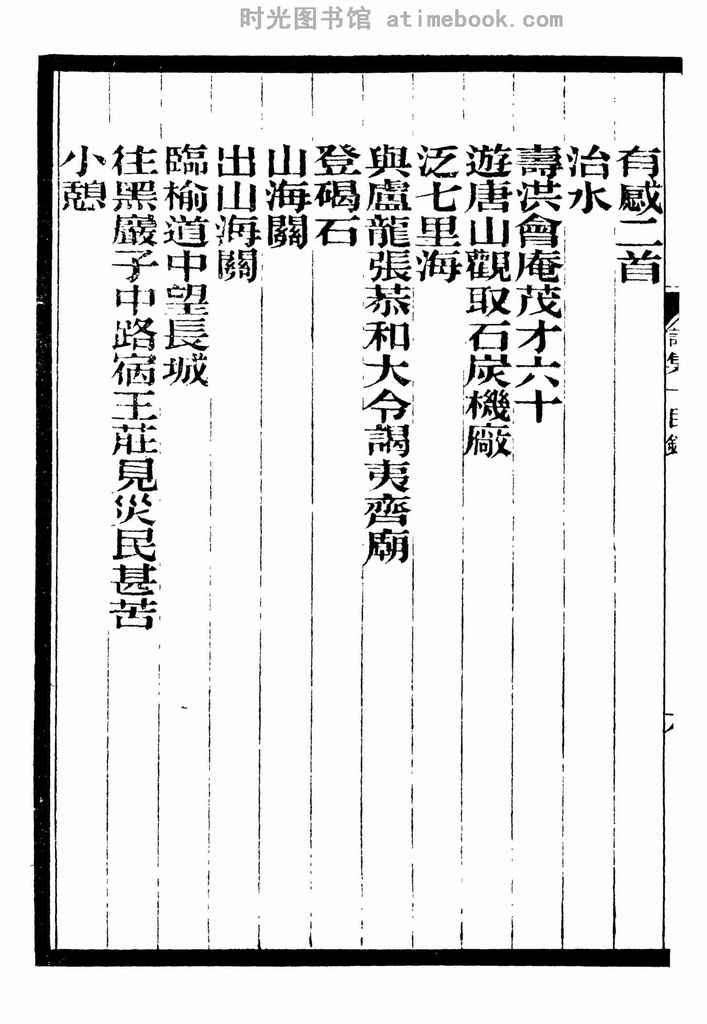 时光图书馆 atimebook.com
有感二首
治水
壽洪會庵茂才六十
遊唐山觀取石炭機廠
泛七里海
與盧龍張恭和大令謁夷齊廟
登碣石
山海關
出山海關
臨榆道中望長城
往黑巖子中路宿王莊見災民甚苦
小憩